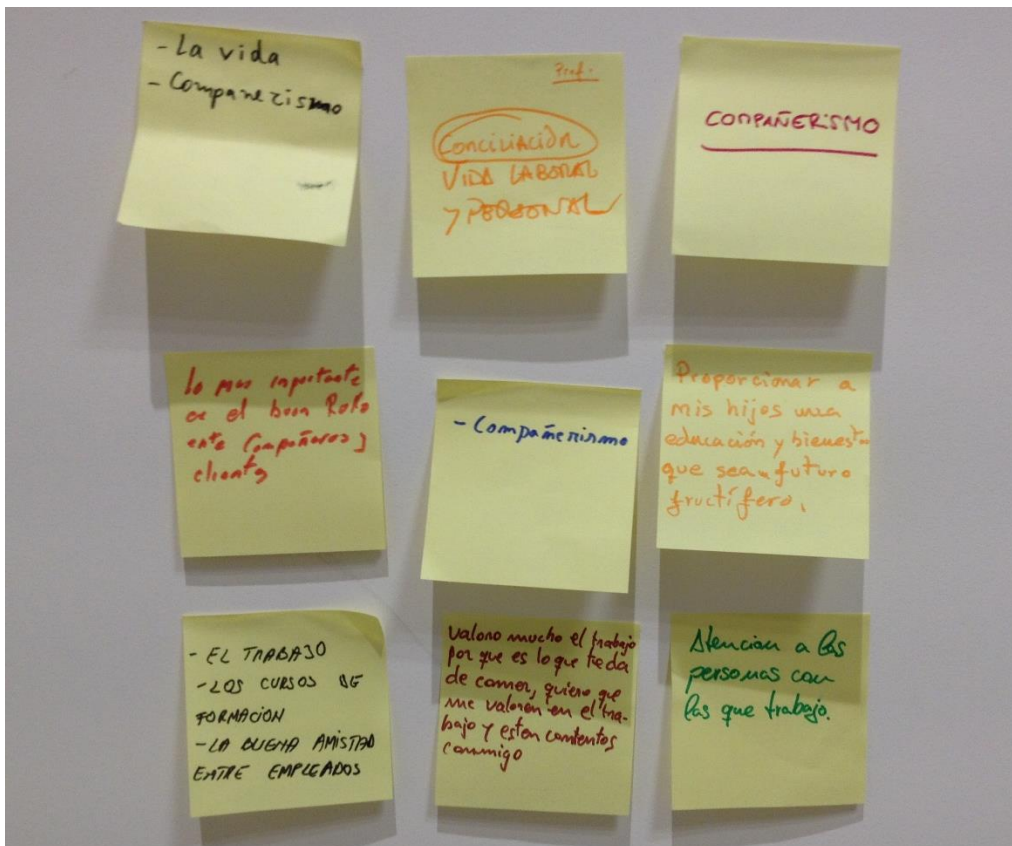 - La vida
- Compañerismo
Prof.
CONCILIACIÓN
VIDA LABORAL
Y PERSONAL
COMPAÑERISMO
lo mas importante
es el buen
ente Compañeros y
clientes
- Compañerismo
Proporcionar a
mis hijos una
educación y bienest
que sea futuro
fructífero.
- EL TRABAJO
- LOS CURSOS DE
FORMACION
- LA BUENA AMISTAD
ENTRE EMPLEADOS
Valoro mucho el trabajo
por que es lo que te da
de comer, quiero que
me valoren en el tra-
bajo y esten contentos
conmigo
Atencion a las
personas con
las que trabajo.